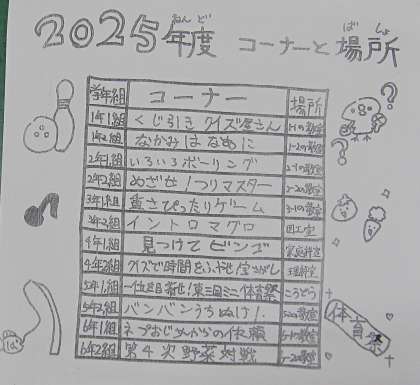 2025年度 コーナーと場所
ねんど ばしょ
学年組 コーナー 場所
1年1組 くじ引き クイズ屋さん 1-1の教室
1年2組 なかみはなあに 1-2の教室
2年1組 いろいろボーリング 2-1の教室
2年2組 めざせ!つりマスター 2-2の教室
3年1組 重さぴったりゲーム 3-1の教室
3年2組 イントロマグロ 図工室
4年1組 見つけてビンゴ 家庭科室
4年2組 クイズで時間をふやせ!宝さがし 理科室
5年1組 一位を目指せ!東三国ミニ体育祭 こうどう
5年2組 バンバンうちぬけ! 5-2の教室
6年1組 ネプおじさんからの依頼
6年2組 第4次野菜対戦
体育祭